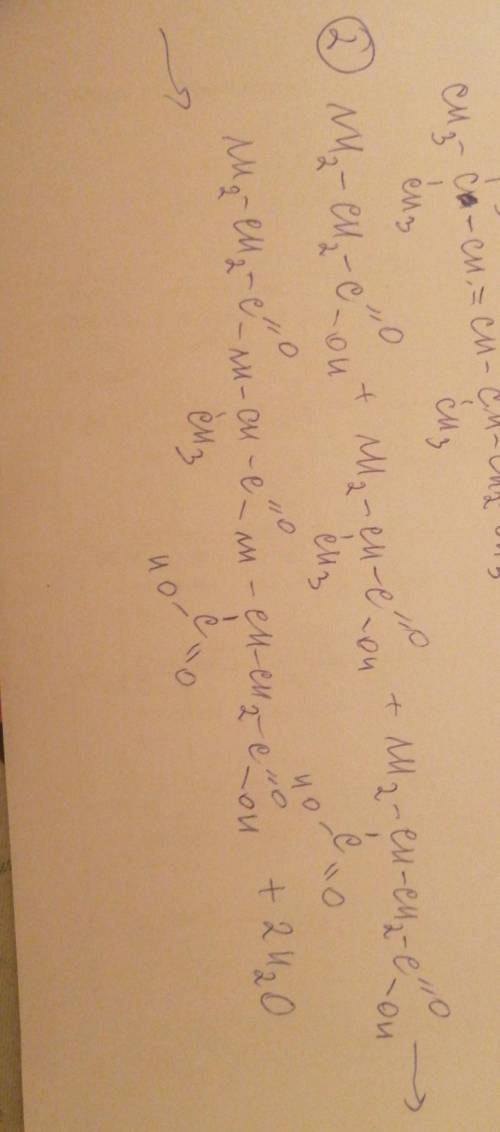 CH3-CH-CH=CH-CH-CH2
CH3 CH3
② NH2-CH2-C=O-OH + NH2-CH-C=O-OH + NH2-CH-CH2-C=O-OH →
CH3 HO-C=O
→ NH2-CH2-C=O-NH-CH-C=O-NH-CH-CH2-C=O-OH + 2H2O
CH3 HO-C=O